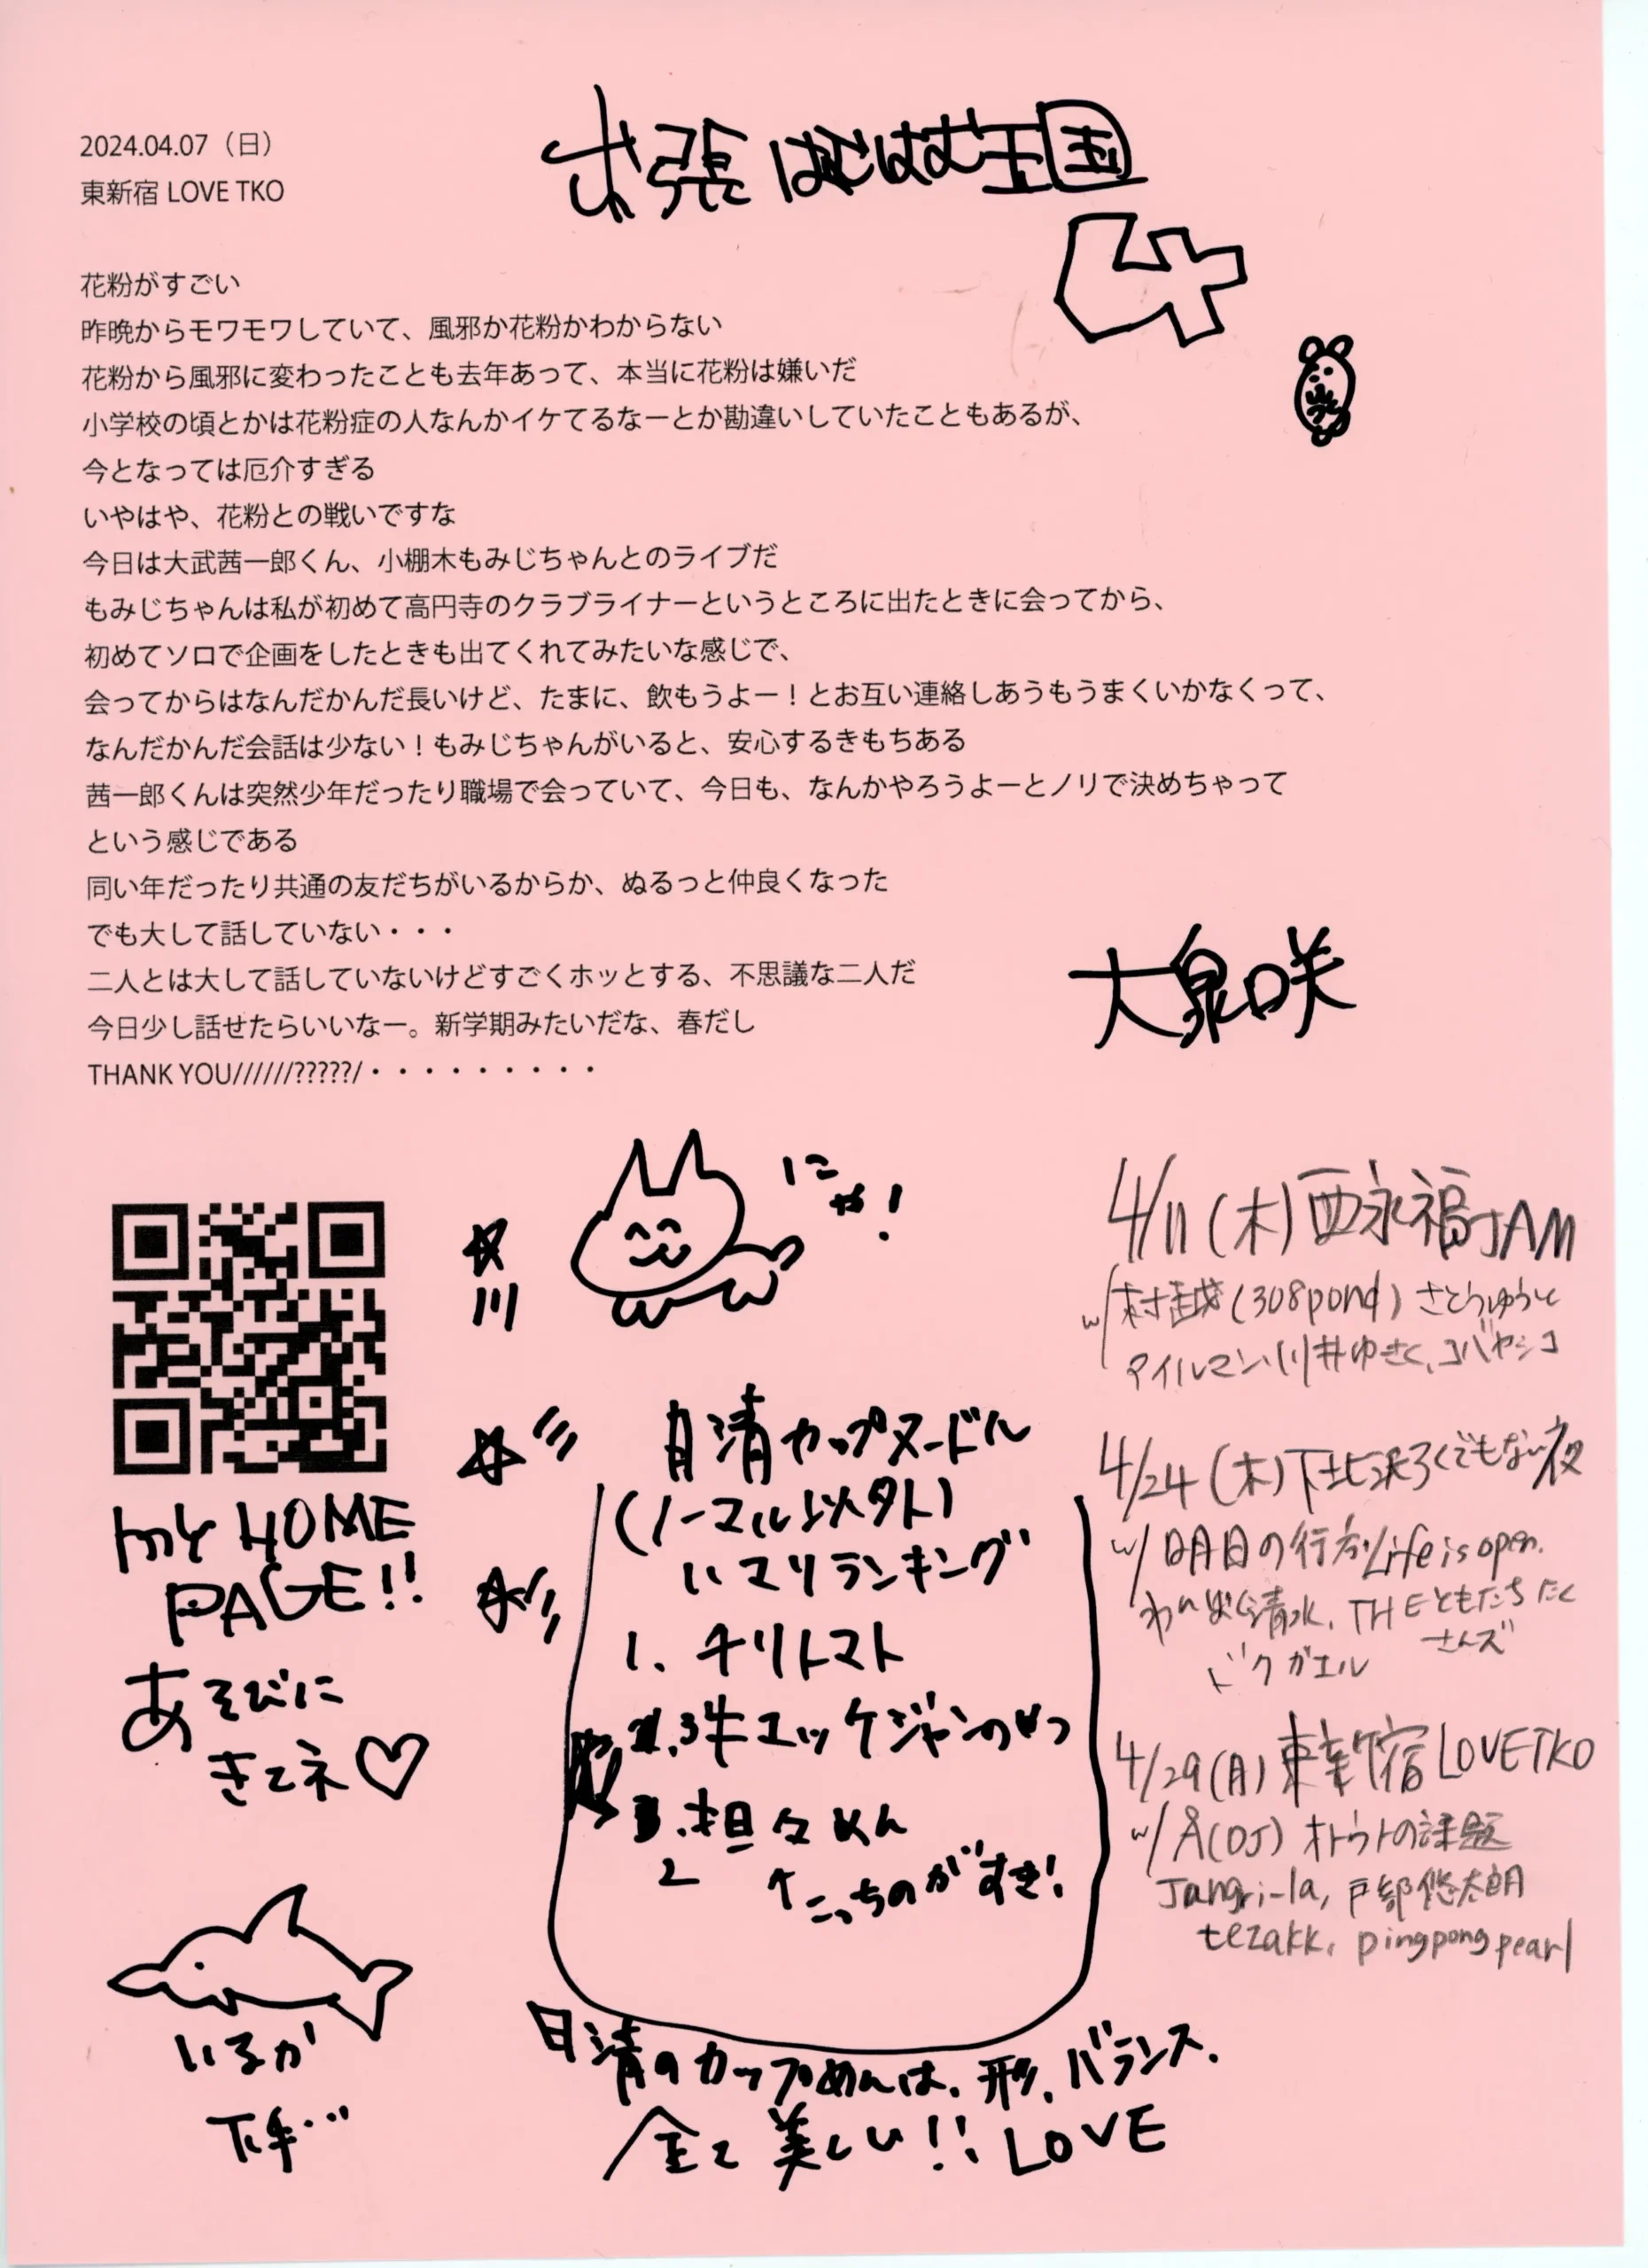 2024.04.07（日）
東新宿 LOVE TKO
出張 はむはむ王国
4
花粉がすごい
昨晩からモワモワしていて、風邪か花粉かわからない
花粉から風邪に変わったことも去年あって、本当に花粉は嫌いだ
小学校の頃とかは花粉症の人なんかイケてるなーとか勘違いしていたこともあるが、
今となっては厄介すぎる
いやはや、花粉との戦いですな
今日は大武茜一郎くん、小棚木もみじちゃんとのライブだ
もみじちゃんは私が初めて高円寺のクラブライナーというところに出たときに会ってから、
初めてソロで企画をしたときも出てくれてみたいな感じで、
会ってからはなんだかんだ長いけど、たまに、飲もうよー！とお互い連絡しあうもうまくいかなくって、
なんだかんだ会話は少ない！もみじちゃんがいると、安心するきもちある
茜一郎くんは突然少年だったり職場で会っていて、今日も、なんかやろうよーとノリで決めちゃって
という感じである
同い年だったり共通の友だちがいるからか、ぬるっと仲良くなった
でも大して話していない・・・
二人とは大して話していないけどすごくホッとする、不思議な二人だ
今日少し話せたらいいなー。新学期みたいだな、春だし
THANK YOU//////?????/・・・・・・・・・
大泉咲
にゃ！
my HOME
PAGE!!
あそびに
きてネ♡
いるか
下手…
日清カップヌードル
(ノーマル以外)
いマリランキング
1. チリトマト
3 牛ユッケジャンのやつ
.担々めん
2
↑こっちのがすき!
日清のカップめんは、形、バランス、
全て美しい!! LOVE
4/11 (木) 西永福JAM
w/ 村越(308pond) さとうゆうと
タイルマン、川井ゆさく、コバヤシコ
4/24 (木) 下北沢ろくでもない夜
w/ 明日の行方, Life is open.
わんぱく清水, THEともだちたく
さんズ
ドクガエル
4/29(月) 東新宿 LOVE TKO
w/ Å(DJ) オトウトの課題
Jangri-la, 戸部悠太朗
tezakk, pingpong pearl